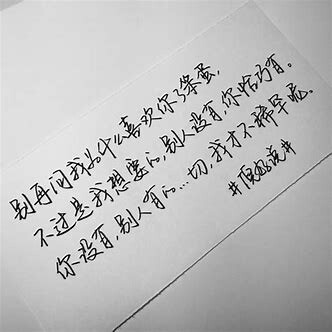 别再问我为什么喜欢你了笨蛋，
不过是我想要的，别人没有，你恰巧有。
你没有，别人有的…一切，我才不稀罕呢。